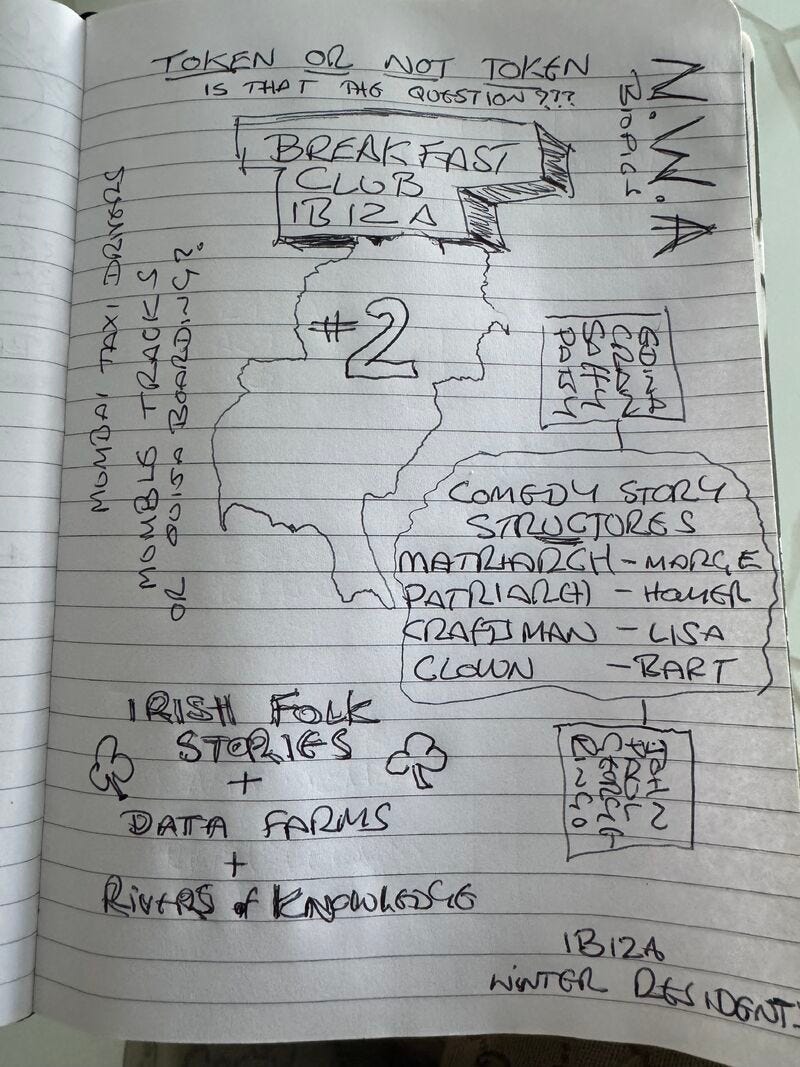 TOKEN OR NOT TOKEN
IS THAT THE QUESTION???
N.W.A
BIOPICS
BREAKFAST
CLUB
IBIZA
#2
MUMBAI TAXI DRIVERS
MUMBLE TRACKS
OR OUISA BOARDING?
EDINA
GRAN
SAFFY
PATSY
COMEDY STORY
STRUCTURES
MATRIARCH - MARGE
PATRIARCH - HOMER
CRAFTSMAN - LISA
CLOWN - BART
JOHN
PAUL
GEORGE
RINGO
IRISH FOLK
STORIES
+
DATA FARMS
+
RIVERS of KNOWLEDGE
IBIZA
WINTER RESIDENTS